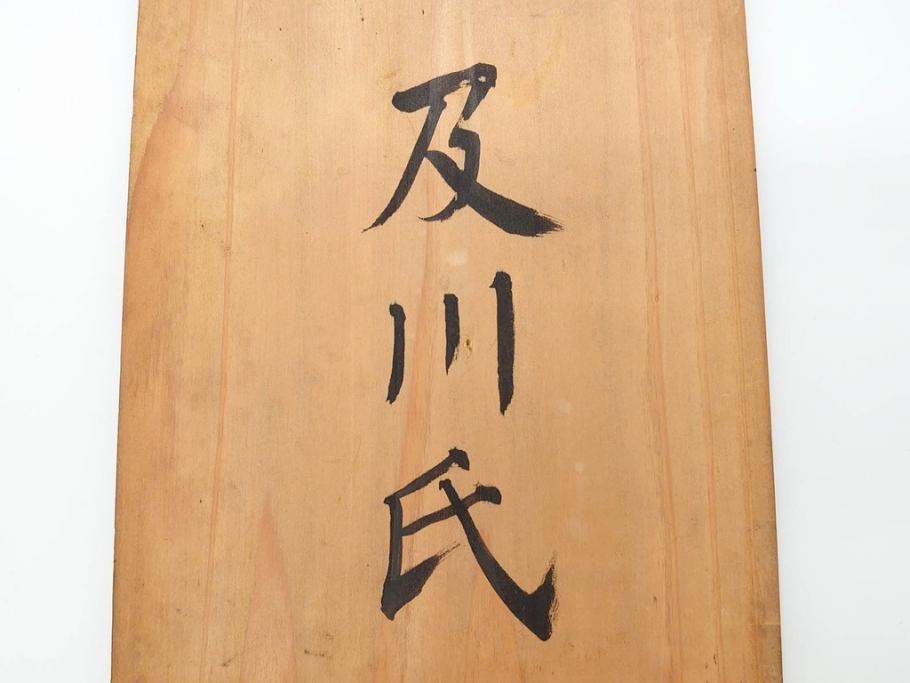 及川氏